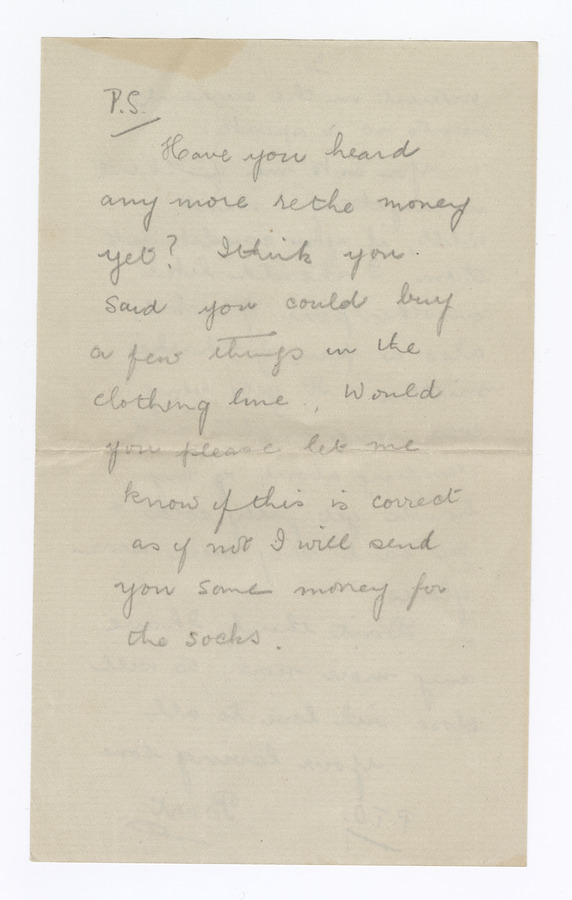 P.S.
Have you heard
any more re the money
yet? I think you
said you could buy
a few things in the
clothing line. Would
you please let me
know if this is correct
as if not I will send
you some money for
the socks.
P.T.O.